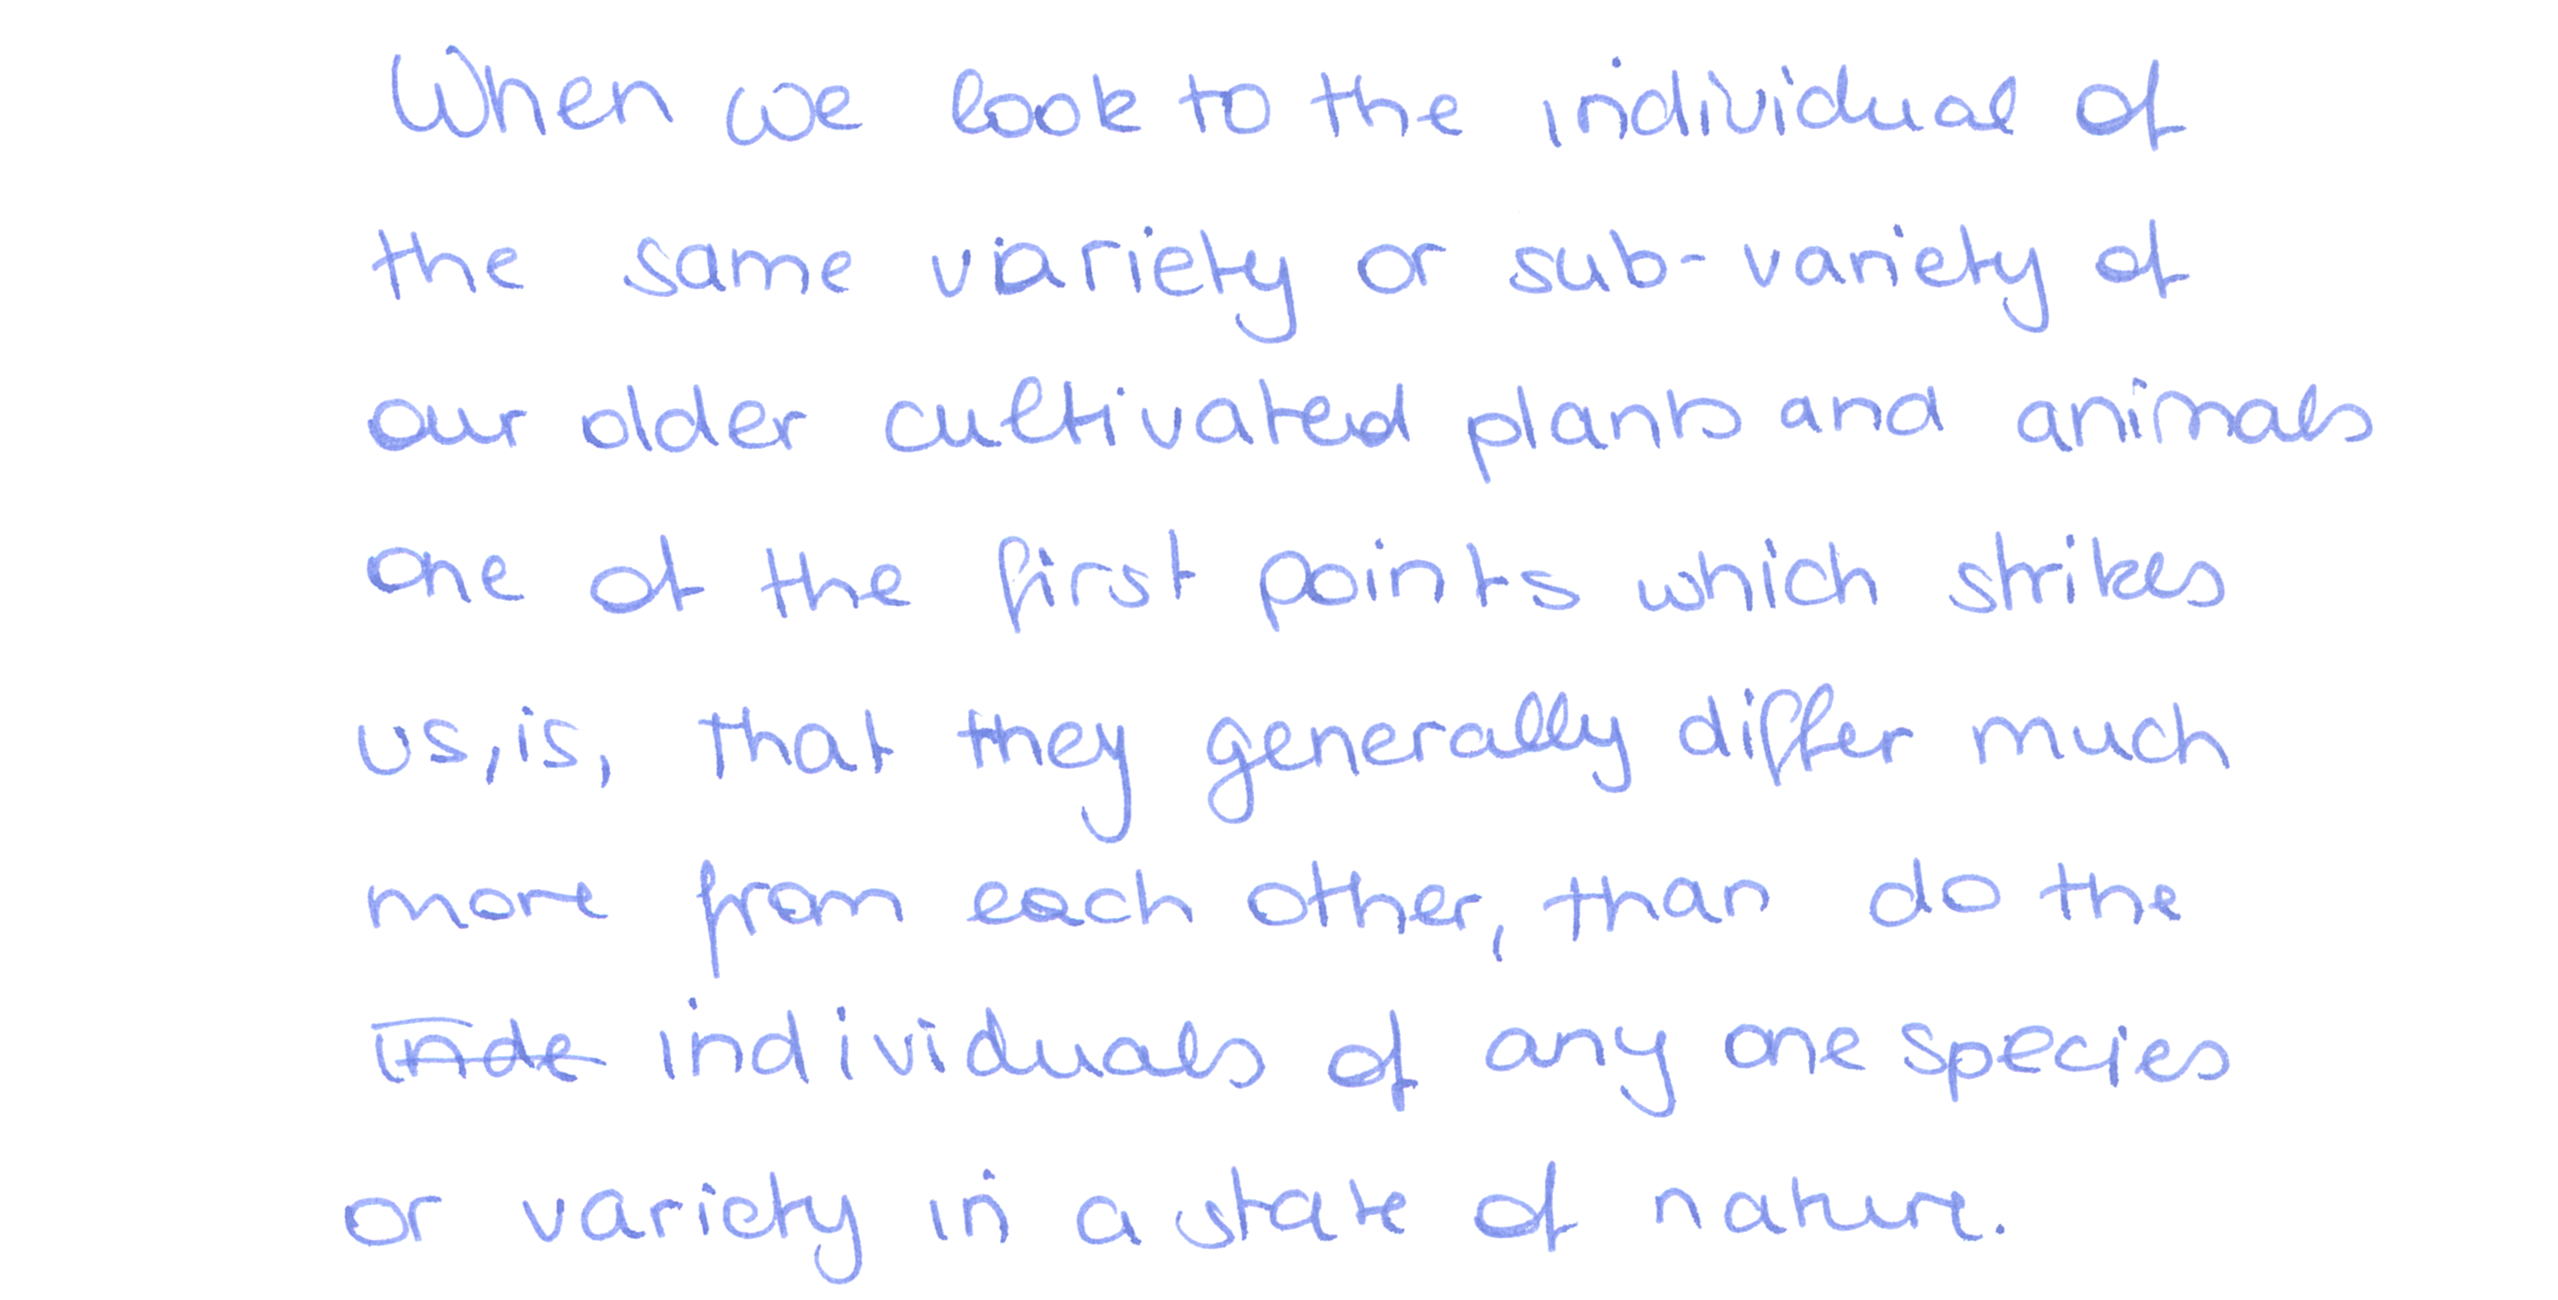 When we look to the individual of
the same variety or sub-variety of
our older cultivated plants and animals
one of the first points which strikes
us, is, that they generally differ much
more from each other, than do the
inde individuals of any one species
or variety in a state of nature.